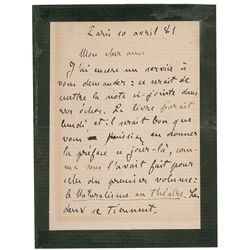 Paris 10 avril 81
Mon cher ami
J'ai encore un service à
vous demander : ce serait de
mettre la note ci-jointe dans
vos échos. Le livre paraît
lundi et il serait bon que
vous puissiez en donner
la préface ce jour-là, com-
me vous l'avait fait pour
celle du premier volume :
le Naturalisme au théâtre. Les
deux se tiennent.